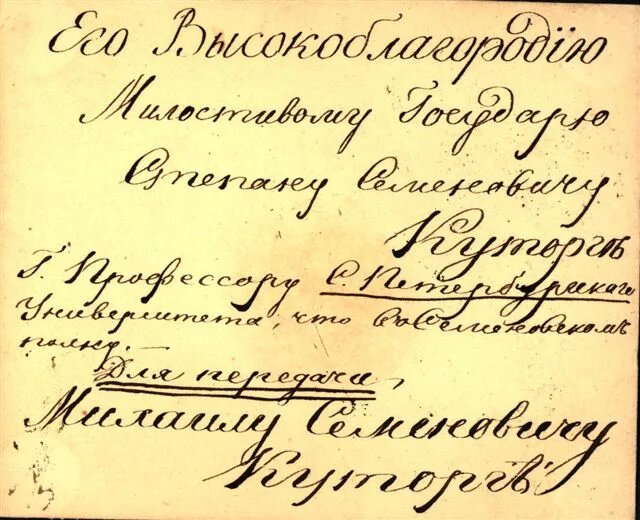 Его Высокоблагородїю
Милостивому Государю
Степану Семеновичу
Куторгѣ
Г. Профессору С. Петербурскаго
Университета, что въ Семеновскомъ
полку.
Для передачи
Михаилу Семеновичу
Куторгѣ